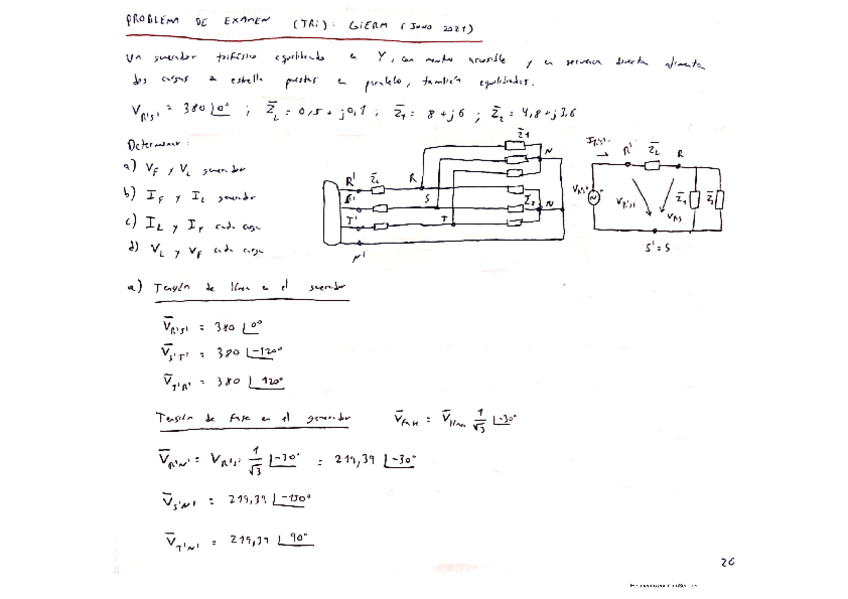 PROBLEMA DE EXAMEN (TRI): GIERM (JUNIO 2021)
Un generador trifásico equilibrado en Y, con neutro accesible y en secuencia directa alimenta
dos cargas en estrella puestas en paralelo, también equilibradas.
V̄R'S' = 380 ∟0° ; Z̄L = 0,5 + j0,1 ; Z̄1 = 8 + j6 ; Z̄2 = 4,8 + j3,6
Determinar:
a) VF y VL generador
b) IF y IL generador
c) IL y IF cada carga
d) VL y VF cada carga
Z̄1
N
R' Z̄L R
S' S Z̄2 N
T' T
N'
R' Z̄L R
VR'S' VRS Z̄1 Z̄2
S' = S
a) Tensión de línea en el generador
V̄R'S' = 380 ∟0°
V̄S'T' = 380 ∟-120°
V̄T'R' = 380 ∟120°
Tensión de fase en el generador V̄fase = V̄línea 1/√3 ∟-30°
V̄R'N' = VR'S' 1/√3 ∟-30° = 219,39 ∟-30°
V̄S'N' = 219,39 ∟-150°
V̄T'N' = 219,39 ∟90°
26